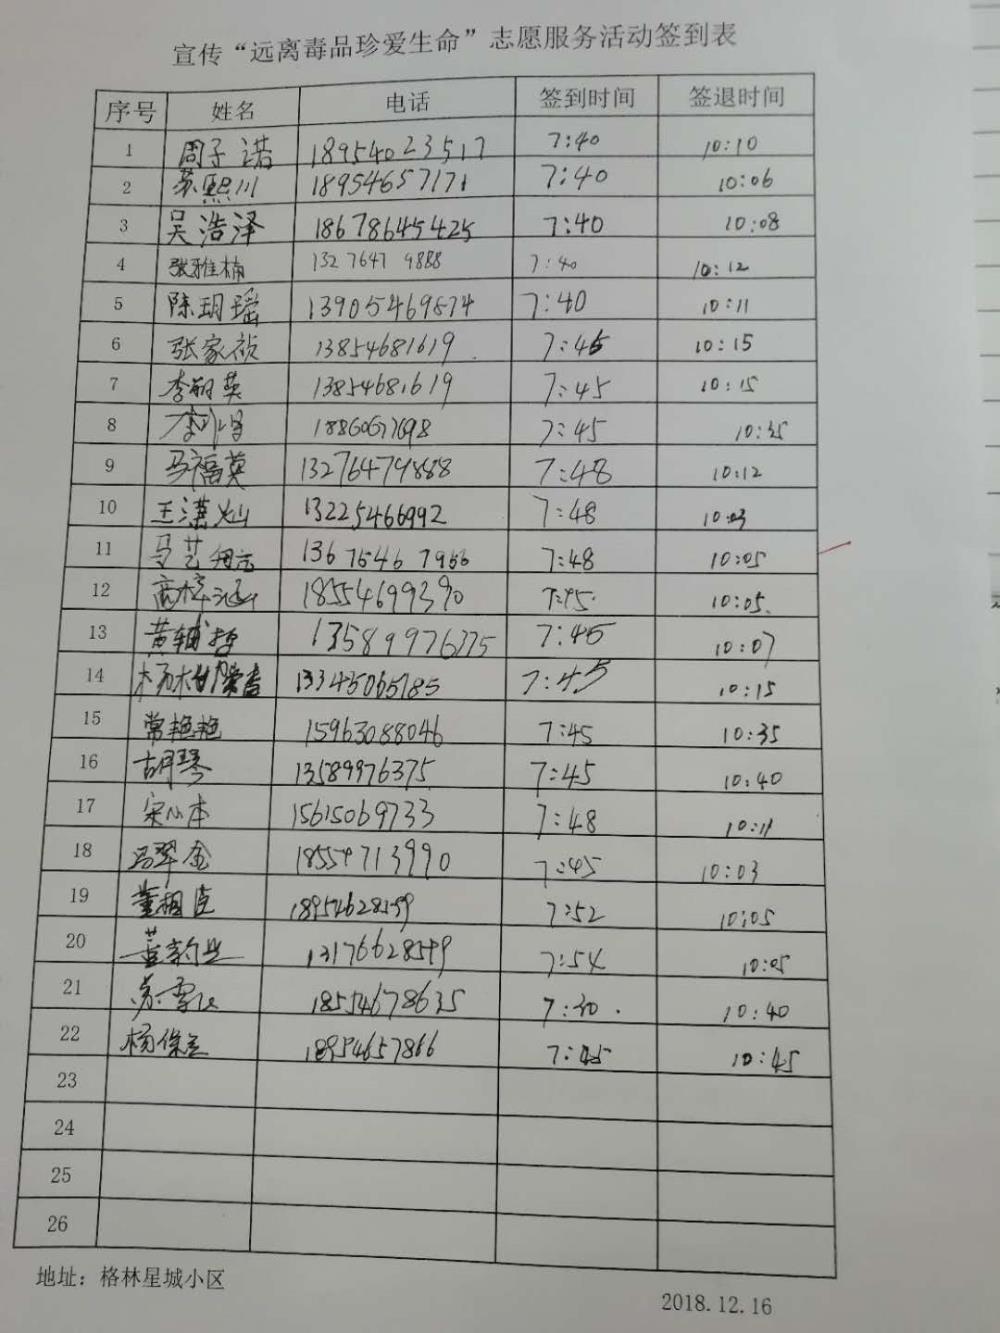 宣传“远离毒品珍爱生命”志愿服务活动签到表
序号 姓名 电话 签到时间 签退时间
1 周子诺 18954023517 7:40 10:10
2 苏熙川 18954657171 7:40 10:06
3 吴浩泽 18678645425 7:40 10:08
4 张雅楠 132 7647 9888 7:40 10:12
5 陈玥瑶 13905469874 7:40 10:11
6 张家祯 13854681619 7:45 10:15
7 李丽英 13854681619 7:45 10:15
8 7:45 10:35
9 马福英 13276479888 7:48 10:12
10 王潇灿 13225466992 7:48 10:03
11 马艺 7:48 10:05
12 高梓涵 18554699390 10:05
13 黄辅哲 7:45 10:07
14 13345065785 7:45 10:15
15 常艳艳 15963088046 7:45 10:35
16 胡琴 13589976375 7:45 10:40
17 宋小本 15615069733 7:48 10:11
18 马翠金 18554713990 7:45 10:03
19 董桐臣 18954628599 7:52 10:05
20 13176628599 7:54 10:05
21 苏雪 18554678635 7:30 10:40
22 杨保 18954657866 7:45 10:45
23
24
25
26
地址：格林星城小区
2018.12.16